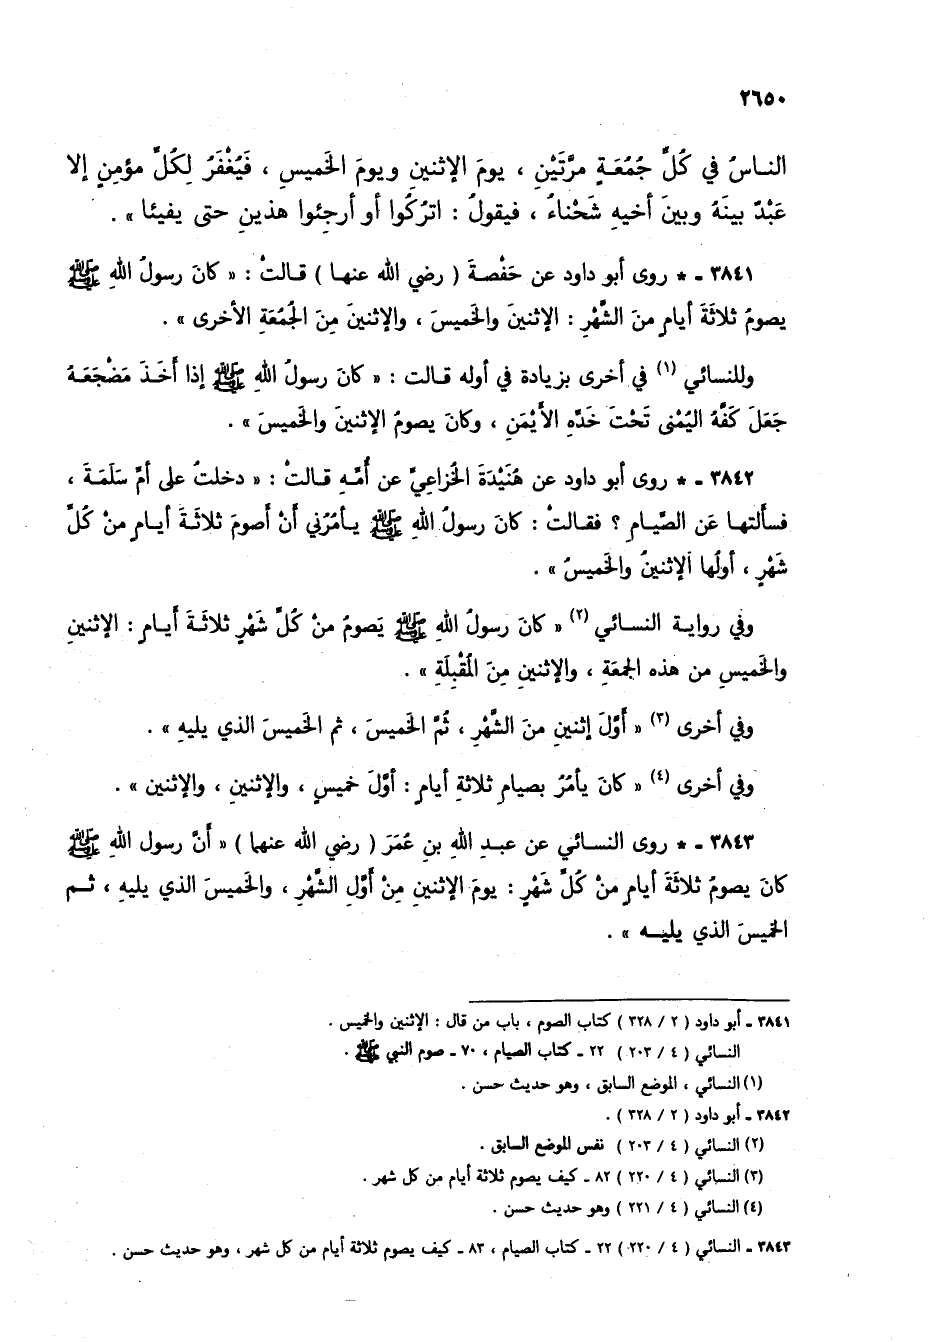 ٢٦٥٠
الناسُ في كُلِّ جُمُعَةٍ مرَّتَيْنِ ، يومَ الإثنينِ ويومَ الخَميسِ ، فَيُغْفَرُ لِكُلِّ مؤمنٍ إلا
عَبْدٌ بينَهُ وبينَ أخيهِ شَحْناءُ ، فيقولُ : اترُكُوا أو أرجئوا هذينِ حتى يفيئا » .
٣٨٤١ ـ * روى أبو داود عن حَفْصةَ ( رضي الله عنها ) قالتْ : « كانَ رسولُ اللهِ ﷺ
يصومُ ثلاثَةَ أيامٍ منَ الشَّهْرِ : الإثنينَ والخَميسَ ، والإثنينَ مِنَ الجُمُعَةِ الأخرى » .
وللنسائي (١) في أخرى بزيادة في أوله قالت : « كانَ رسولُ اللهِ ﷺ إذا أَخَذَ مَضْجَعَهُ
جَعَلَ كَفَّهُ اليُمْنى تَحْتَ خَدِّهِ الأَيْمَنِ ، وكانَ يصومُ الإثنينَ والخَميسَ » .
٣٨٤٢ ـ * روى أبو داود عن هُنَيْدَةَ الخُزاعِيِّ عن أُمِّهِ قالتْ : « دخلتُ على أمِّ سَلَمَةَ ،
فسألتها عَنِ الصِّيامِ ؟ فقالتْ : كانَ رسولُ اللهِ ﷺ يأمُرُني أنْ أصومَ ثلاثةَ أيامٍ منْ كُلِّ
شَهْرٍ ، أولُها الإثنينُ والخَميسُ » .
وفي رواية النسائي (٢) « كانَ رسولُ اللهِ ﷺ يَصومُ منْ كُلِّ شَهْرٍ ثلاثَةَ أيامٍ : الإثنينِ
والخَميسِ من هذه الجمعَةِ ، والإثنينِ مِنَ المُقْبِلَةِ » .
وفي أخرى (٣) « أَوَّلَ إثنينِ منَ الشَّهْرِ ، ثُمَّ الخَميسَ ، ثم الخَميسَ الذي يليهِ » .
وفي أخرى (٤) « كانَ يأمُرُ بصيامِ ثلاثةِ أيامٍ : أوَّلَ خميسٍ ، والإثنينِ ، والإثنين » .
٣٨٤٣ ـ * روى النسائي عن عبدِ اللهِ بنِ عُمَرَ ( رضي الله عنهما ) « أنَّ رسول اللهِ ﷺ
كانَ يصومُ ثلاثَةَ أيامٍ منْ كُلِّ شَهْرٍ : يومَ الإثنينِ مِنْ أَوَّلِ الشَّهْرِ ، والخَميسَ الذي يليهِ ، ثم
الخميسَ الذي يليه » .
٣٨٤١ ـ أبو داود ( ٢ / ٣٢٨ ) كتاب الصوم ، باب من قال : الإثنين والخميس .
النسائي ( ٤ / ٢٠٣ ) ٢٢ ـ كتاب الصيام ، ٧٠ ـ صوم النبي ﷺ .
(١) النسائي ، الموضع السابق ، وهو حديث حسن .
٣٨٤٢ ـ أبو داود ( ٢ / ٣٢٨ ) .
(٢) النسائي ( ٤ / ٢٠٣ ) نفس الموضع السابق .
(٣) النسائي ( ٤ / ٢٢٠ ) ٨٢ ـ كيف يصوم ثلاثة أيام من كل شهر .
(٤) النسائي ( ٤ / ٢٢١ ) وهو حديث حسن .
٣٨٤٣ ـ النسائي ( ٤ / ٢٢٠ ) ٢٢ ـ كتاب الصيام ، ٨٣ ـ كيف يصوم ثلاثة أيام من كل شهر ، وهو حديث حسن .